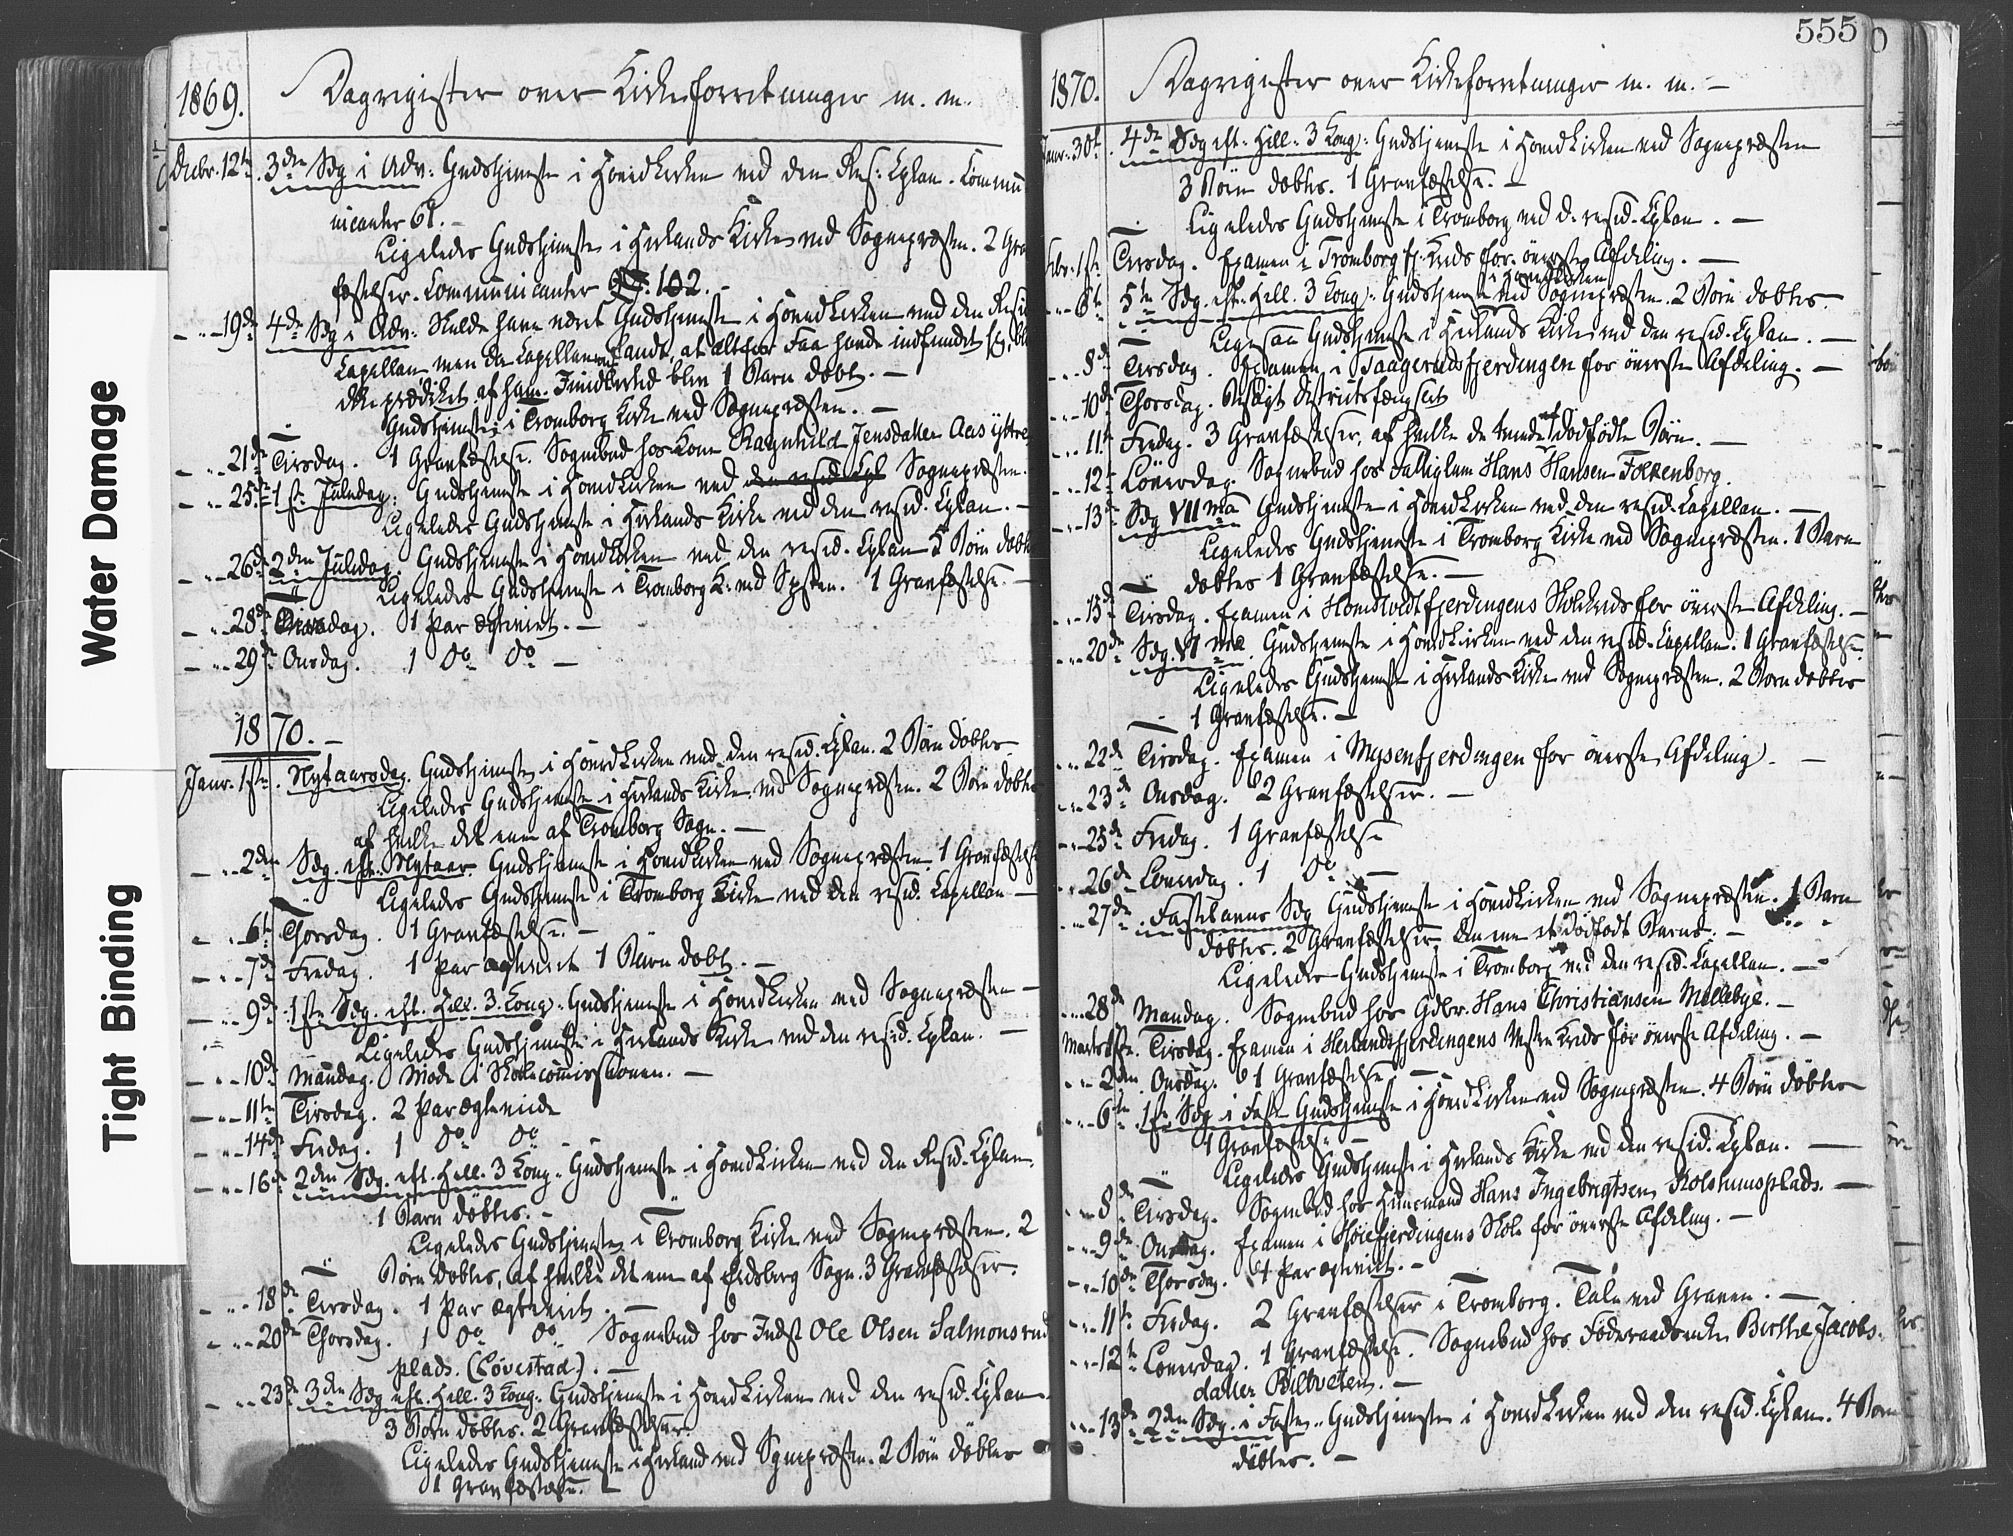 Water Damage
Tight Binding
1869. Dagregister over Kirkeforretninger m. m.
Decbr. 12te. 3die Sdg i Adv: Gudstjeneste i Hovedkirken ved den Res: Cplan. Commu
nicanter 61. –
Ligeledes Gudstjeneste i Herlands Kirke ved Sognepræsten. 2 Gra
fæstelser. Communicanter 102. –
– „ – 19de 4de Sdg i Adv: Skulde have været Gudstjeneste i Hovedkirken ved den Resid
Capellan men da Capellanen fandt, at altfor Faa havde indfundet sig, ble
ikke prædiket af ham. Imidlertid blev 1 Barn døbt. –
Gudstjeneste i Tromborg Kirke ved Sognepræsten. –
– „ – 21de Tirsdag. 1 Gravfæstelse. Sognebud hos Kone Ragnhild Jensdatter Aas ÿttre
– „ – 25de 1ste Juledag: Gudstjeneste i Hovedkirken ved den resid. Cpl Sognepræsten.
Ligeledes Gudstjeneste i Herlands Kirke ved den resid. Cplan. –
– „ – 26de 2den Juledag. Gudstjeneste i Hovedkirken ved den resid. Cplan 5 Børn døbt
Ligeledes Gudstjeneste i Tromborg K: ved Spsten. 1 Gravfæstelse. –
– „ – 28de Tirsdag. 1 Par ægteviet. –
– „ – 29de Onsdag. 1 Do Do –
1870. –
Janr. 1ste. Nytaarsdag. Gudstjeneste i Hovedkirken ved den resid. Cplan. 2 Børn døbtes
Ligeledes Gudstjeneste i Herlands Kirke ved Sognepræsten. 2 Børn døbtes
af hvilke det ene af Tromborg Sogn. –
– „ – 2den Sdg. eft. Nytaar. Gudstjeneste i Hovedkirken ved Sognepræsten 1 Gravfæstelse
Ligeledes Gudstjeneste i Tromborg Kirke ved den resid. Capellan –
„ – 6te Thorsdag. 1 Gravfæstelse. –
– „ – 7de Fredag. 1 Par ægteviet 1 Barn døbt. –
– „ – 9de 1ste Sdg. eft. Hell. 3 Kong: Gudstjeneste i Hovedkirken ved Sognepræsten –
Ligeledes Gudstjeneste i Herlands Kirke ved den resid. Cplan. –
– „ – 10de Mandag. Møde i Skolecommissionen. –
– „ – 11te Tirsdag. 2 Par ægteviede
– „ – 14de Fredag. 1 Do Do
– „ – 16de 2den Sdg. eft. Hell. 3 Kong: Gudstjeneste i Hovedkirken ved den Resid. Cplan.
1 Barn døbtes. –
Ligeledes Gudstjeneste i Tromborg Kirke ved Sognepræsten. 2
Børn døbtes, af hvilke det ene af Eidsberg Sogn. 3 Gravfæstelser.
– „ – 18de Tirsdag. 1 Par ægteviet. –
– „ – 20de Thorsdag. 1 Do Do Sognebud hos Indst Ole Olsen Salmonsrud
plads. (Løvestad). –
– „ – 23de 3die Sdg eft. Hell. 3 Kong: Gudstjeneste i Hovedkirken ved den resid. Cplan
3 Børn døbtes. 2 Gravfæstelser.
Ligeledes Gudstjeneste i Herland ved Sgnepræsten. 2 Børn døbtes
1 Gravfæstelse. –
555
1870. Dagregister over Kirkeforretninger m. m. –
Janr. 30te. 4de Sdg eft. Hell. 3 Kong: Gudstjeneste i Hovedkirken ved Sognepræsten
3 Børn døbtes. 1 Gravfæstelse. –
Ligeledes Gudstjeneste i Tromborg ved d. resid. Cplan. –
Febr. 1ste Tirsdag. Examen i Tromborg fj. Kreds for øverste Afdeling. –
i Hovedkirken
„ – 6te 5te Sdg. eft. Hell. 3 Kong: Gudstjeneste ved Sognepræsten. 2 Børn døbtes.
Ligesaa Gudstjeneste i Herlands Kirke ved den resid. Cplan. –
„ – 8de Tirsdag. Examen i Taagerudsfjerdingen for øverste Afdeling. –
„ – 10de Thorsdag. Besøgt Districtsfængslet
„ – 11te Fredag. 3 Gravfæstelser, af hvilke de tvende dødfødte Børn. –
„ – 12te Løverdag. Sognebud hos Fattiglem Hans Hansen Folkenborg.
„ – 13de Sdg VIIma Gudstjeneste i Hovedkirken ved den resid. Capellan. –
Ligeledes Gudstjeneste i Tromborg Kirke ved Sognepræsten. 1 Barn
døbtes 1 Gravfæstelse. –
„ – 15de Tirsdag. Examen i Homstvedtfjerdingens Skolkreds for øverste Afdeling. –
„ – 20de Sdg. VI ma Gudstjeneste i Hovedkirken ved den resid. Capellan. 1 Gravfæstelse.
Ligeledes Gudstjeneste i Herlands Kirke ved Sognepræsten. 2 Børn døbtes
1 Gravfæstelse. –
„ – 22de Tirsdag. Examen i Mysenfjerdingen for øverste Afdeling. –
„ – 23de Onsdag. 2 Gravfæstelser. –
„ – 25de Fredag. 1 Gravfæstelse
„ – 26de Løverdag. 1 Do –
„ – 27de Fastelavns Sdg Gudstjeneste i Hovedkirken ved Sognepræsten. 1 Barn
døbtes. 2 Gravfæstelser, den ene et dødfødt Barns. –
Ligeledes Gudstjeneste i Tromborg ved den resid. Capellan. –
„ – 28de Mandag. Sognebud hos Gdbr. Hans Christiansen Møllebye. –
Marts 1ste. Tirsdag. Examen i Herlandsfjerdingens Vestre Kreds for øverste Afdeling. –
„ – 2den Onsdag. 1 Gravfæstelse. –
„ – 6te 1ste Sdg i Faste Gudstjeneste i Hovedkirken ved Sognepræsten. 4 Børn døbtes
1 Gravfæstelse –
Ligeledes Gudstjeneste i Herlands Kirke ved den resid. Cplan. –
„ – 8de Tirsdag. Sognebud hos Huusmand Hans Ingebrigtsen, Kolstumsplads. –
„ – 9de Onsdag. Examen i Høiefjerdingens Skole for øverste Afdeling. –
– 10de Thorsdag. 1 Par ægteviet. –
„ – 11te Fredag. 2 Gravfæstelser i Tromborg. Tale ved Graven. –
„ – 12te Løverdag. 1 Gravfæstelse. Sognebud hos Føderaadsenke Birthe Jacobs
datter Biltveten. –
„ – 13de 2den Sdg. i Faste. Gudstjeneste i Hovedkirken ved den resid. Cplan. 4 Børn
døbtes. –